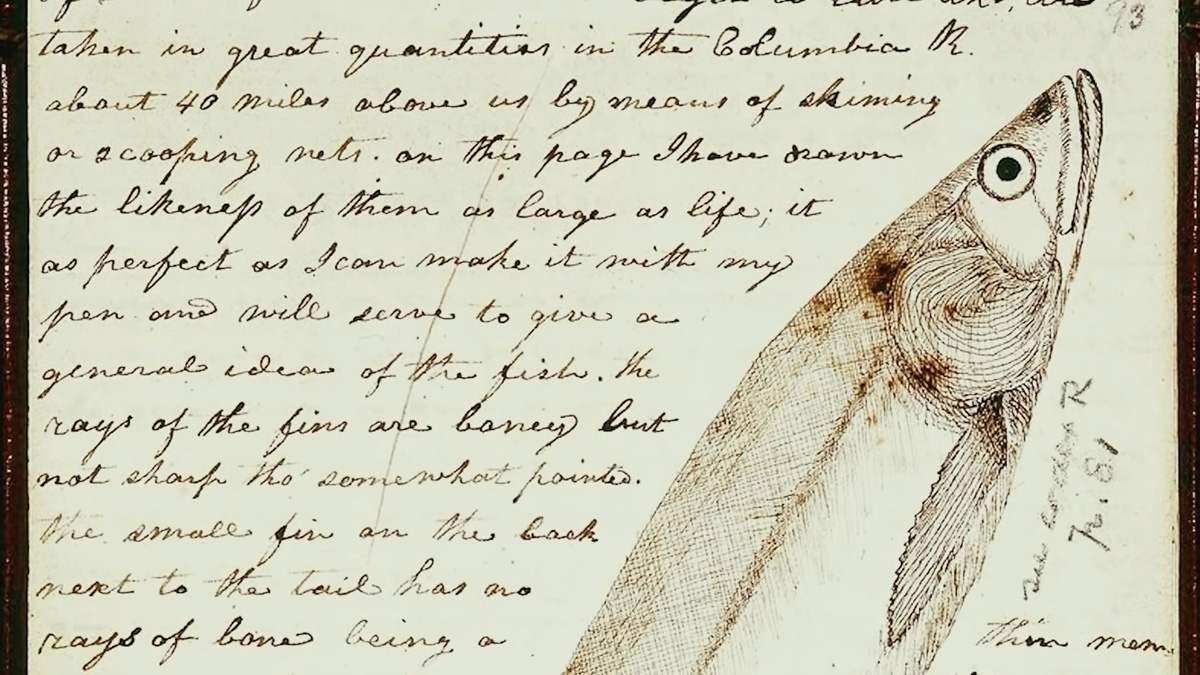 93
taken in great quantities in the Columbia R.
about 40 miles above us by means of skiming
or scooping nets. on this page I have drawn
the likeness of them as large as life; it
as perfect as I can make it with my
pen and will serve to give a
general idea of the fish. the
rays of the fins are boney but
not sharp tho' somewhat pointed.
the small fin on the back
next to the tail has no
rays of bone being a
thin mem-
see codex R
p. 81